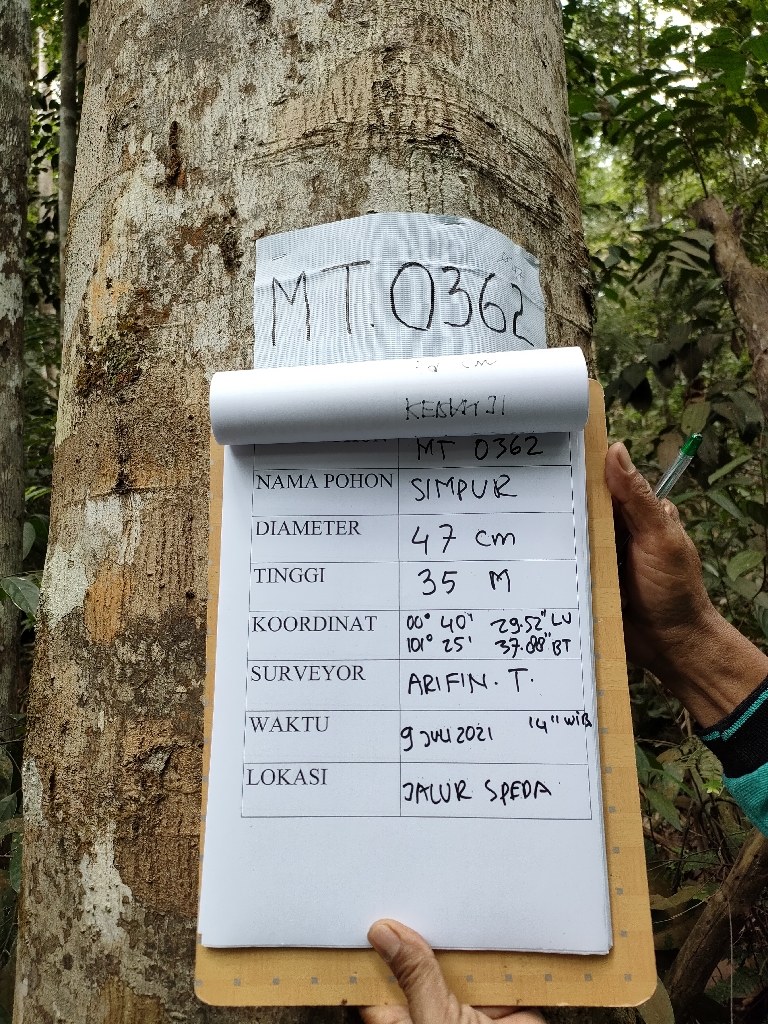 MT. 0362
cm
MT 0362
NAMA POHON SIMPUR
DIAMETER 47 cm
TINGGI 35 M
KOORDINAT 00° 40' 29.52" LU
101° 25' BT
SURVEYOR ARIFIN. T.
WAKTU 9 JULI 2021 14" WIB
LOKASI JALUR SPEDA